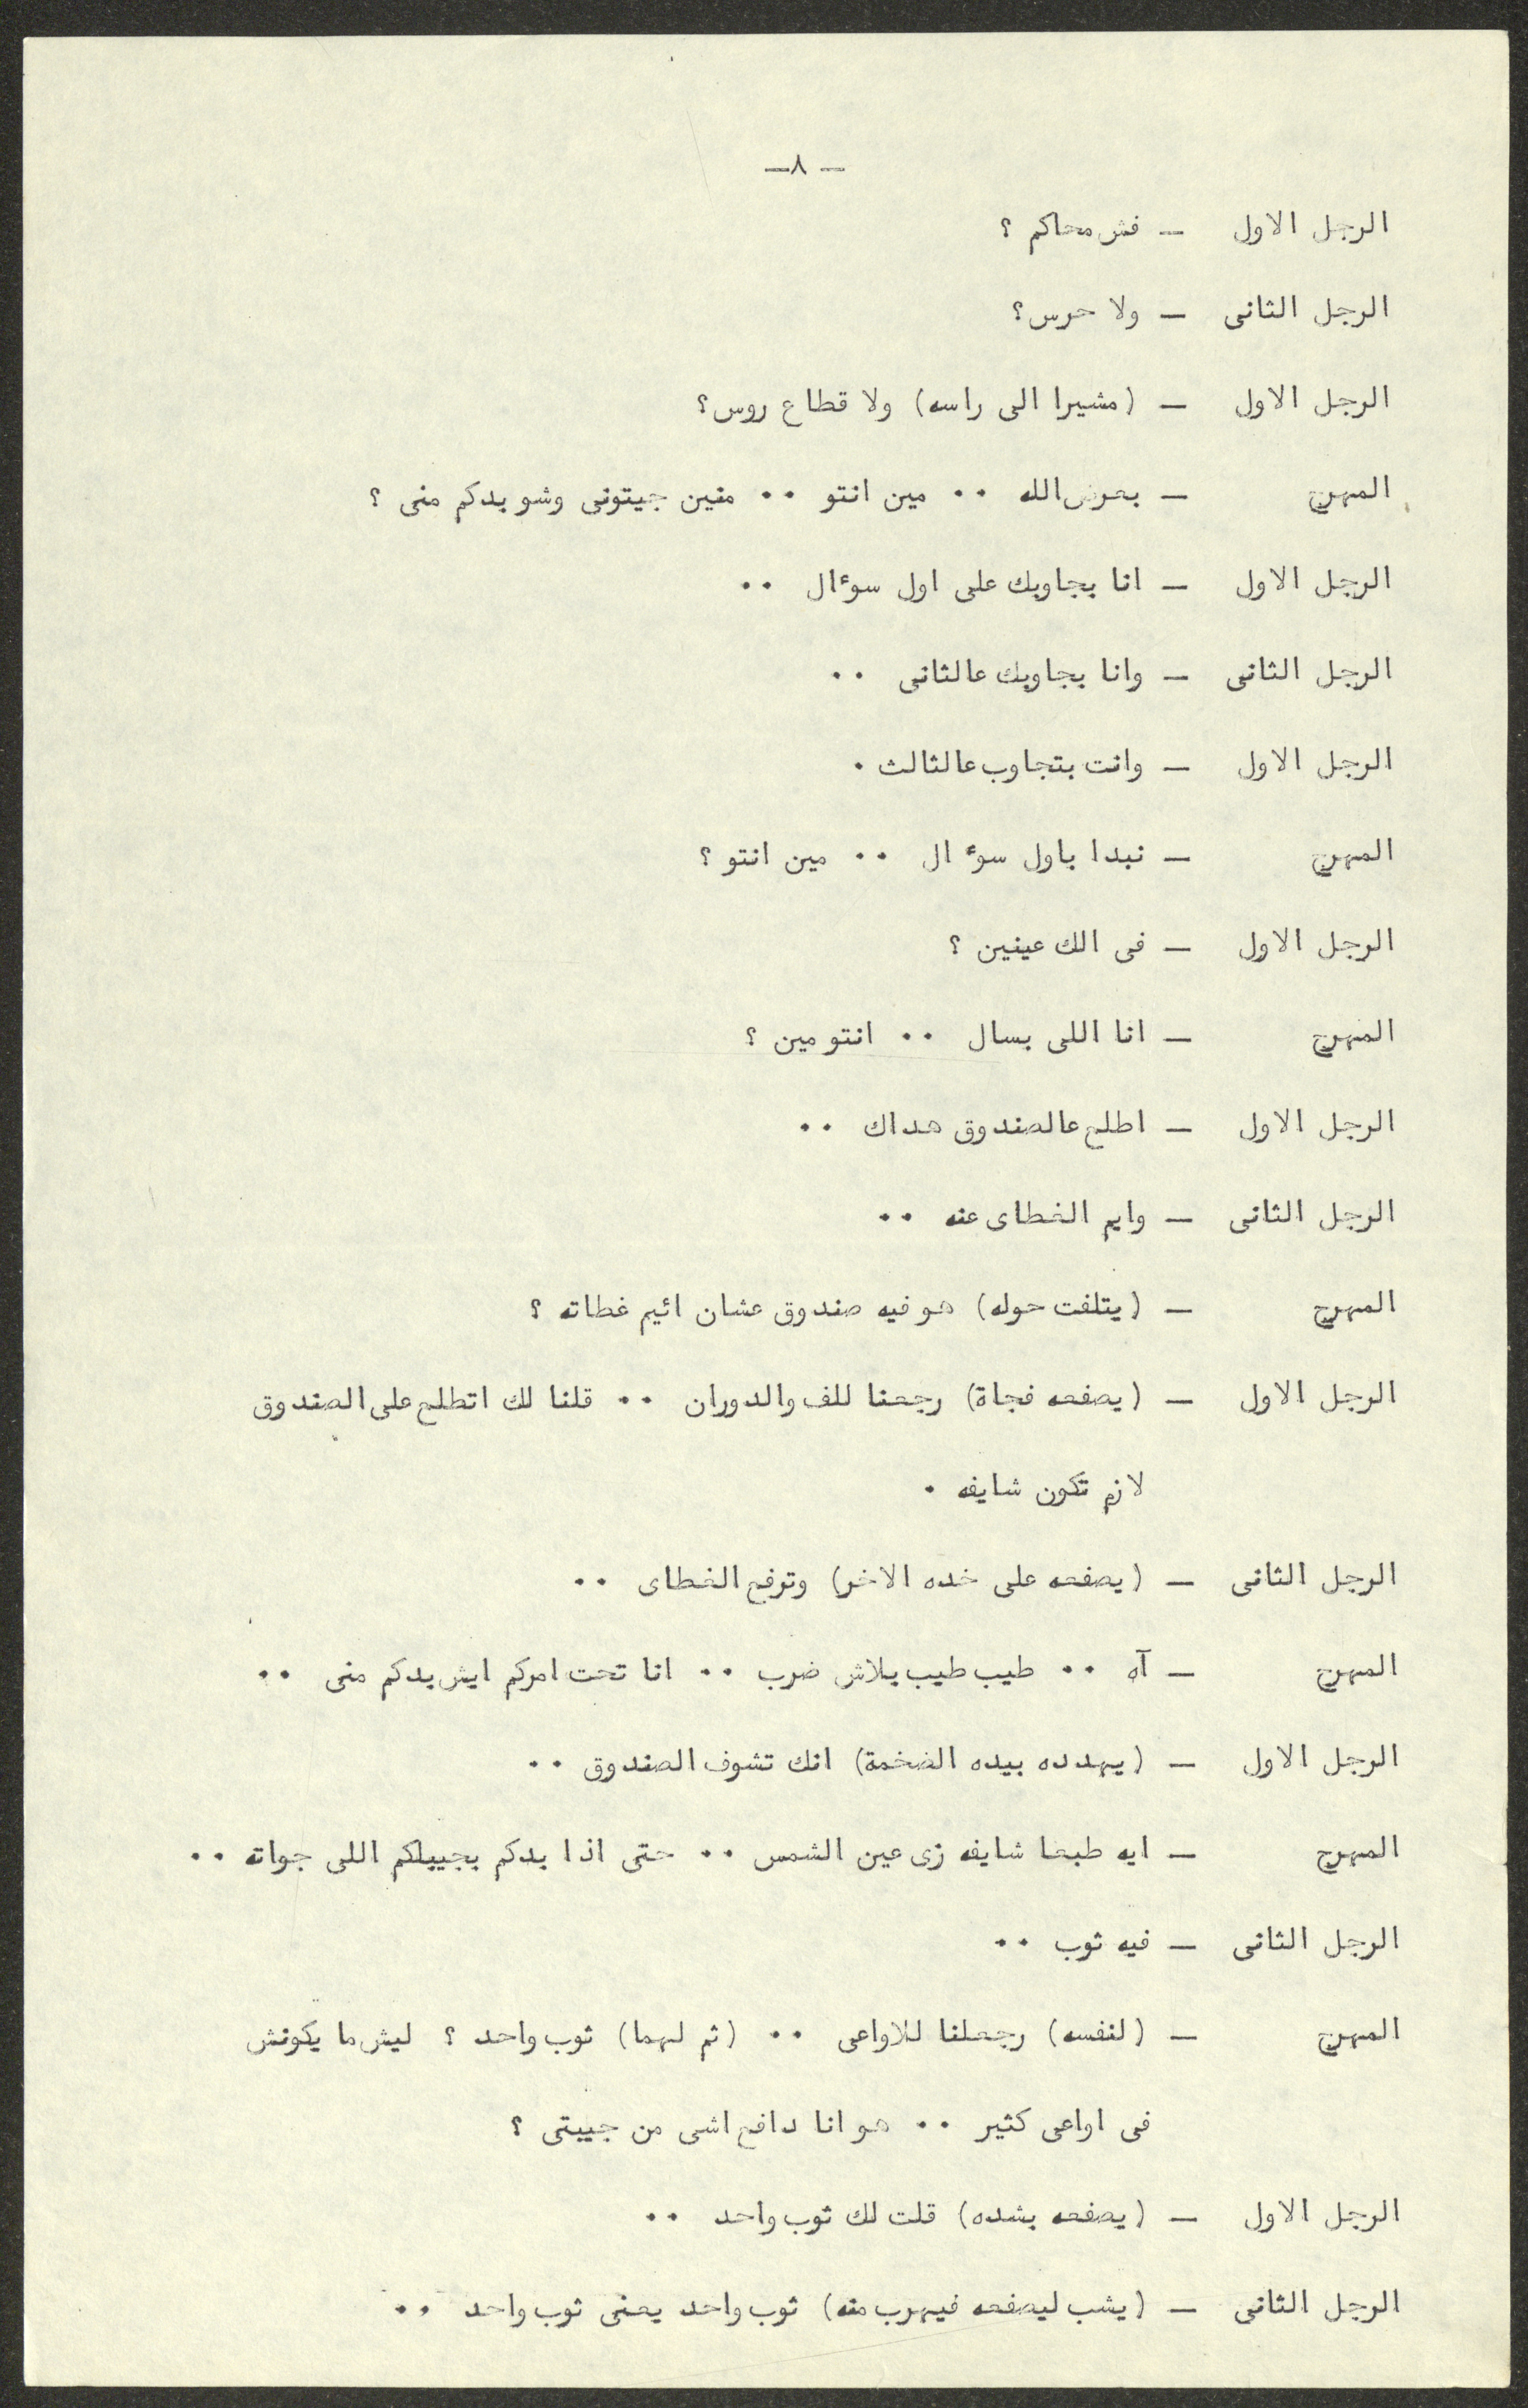 — ٨—
الرجل الاول — فش محاكم ؟
الرجل الثانى — ولا حرس؟
الرجل الاول — (مشيرا الى راسه) ولا قطاع روس؟
المهرج — بعرض الله ٠٠ مين انتو ٠٠ منين جيتونى وشو بدكم منى ؟
الرجل الاول — انا بجاوبك على اول سوءال ٠٠
الرجل الثانى — وانا بجاوبك عالثانى ٠٠
الرجل الاول — وانت بتجاوب عالثالث ٠
المهرج — نبدا باول سوء ال ٠٠ مين انتو ؟
الرجل الاول — فى الك عينين ؟
المهرج — انا اللى بسال ٠٠ انتو مين ؟
الرجل الاول — اطلع عالصندوق هداك ٠٠
الرجل الثانى — وايم الغطاى عنه ٠٠
المهرج — (يتلفت حوله) هو فيه صندوق عشان ائيم غطاته ؟
الرجل الاول — (يصفعه فجاة) رجعنا للف والدوران ٠٠ قلنا لك اتطلع على الصندوق
لازم تكون شايفه ٠
الرجل الثانى — (يصفعه على خده الاخر) وترفع الغطاى ٠٠
المهرج — آه ٠٠ طيب طيب بلاش ضرب ٠٠ انا تحت امركم ايش بدكم منى ٠٠
الرجل الاول — (يهدده بيده الضخمة) انك تشوف الصندوق ٠٠
المهرج — ايه طبعا شايفه زى عين الشمس ٠٠ حتى اذا بدكم بجيبلكم اللى جواته ٠٠
الرجل الثانى — فيه ثوب ٠٠
المهرج — (لنفسه) رجعلنا للاواعى ٠٠ (ثم لهما) ثوب واحد ؟ ليش ما يكونش
فى اواعى كثير ٠٠ هو انا دافع اشى من جيبتى ؟
الرجل الاول — (يصفعه بشده) قلت لك ثوب واحد ٠٠
الرجل الثانى — (يشب ليصفعه فيهرب منه) ثوب واحد يعنى ثوب واحد ٠٠